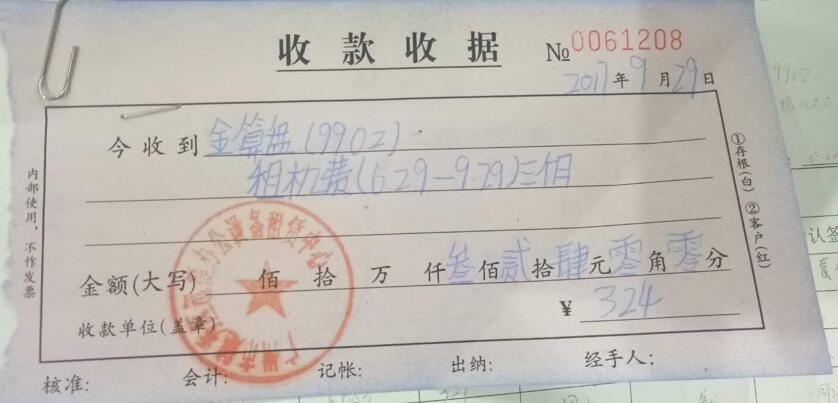 收款收据 №0061208
2017年9月29日
今收到金算盘(9902)
租机费(6.29-9.29)三个月
金额(大写) 佰 拾 万 仟叁佰贰拾肆元零角零分
收款单位(盖章) ¥324
核准: 会计: 记帐: 出纳: 经手人:
内部使用，不作发票
①存根(白) ②客户(红)
办公设备租赁中心
9902
认签